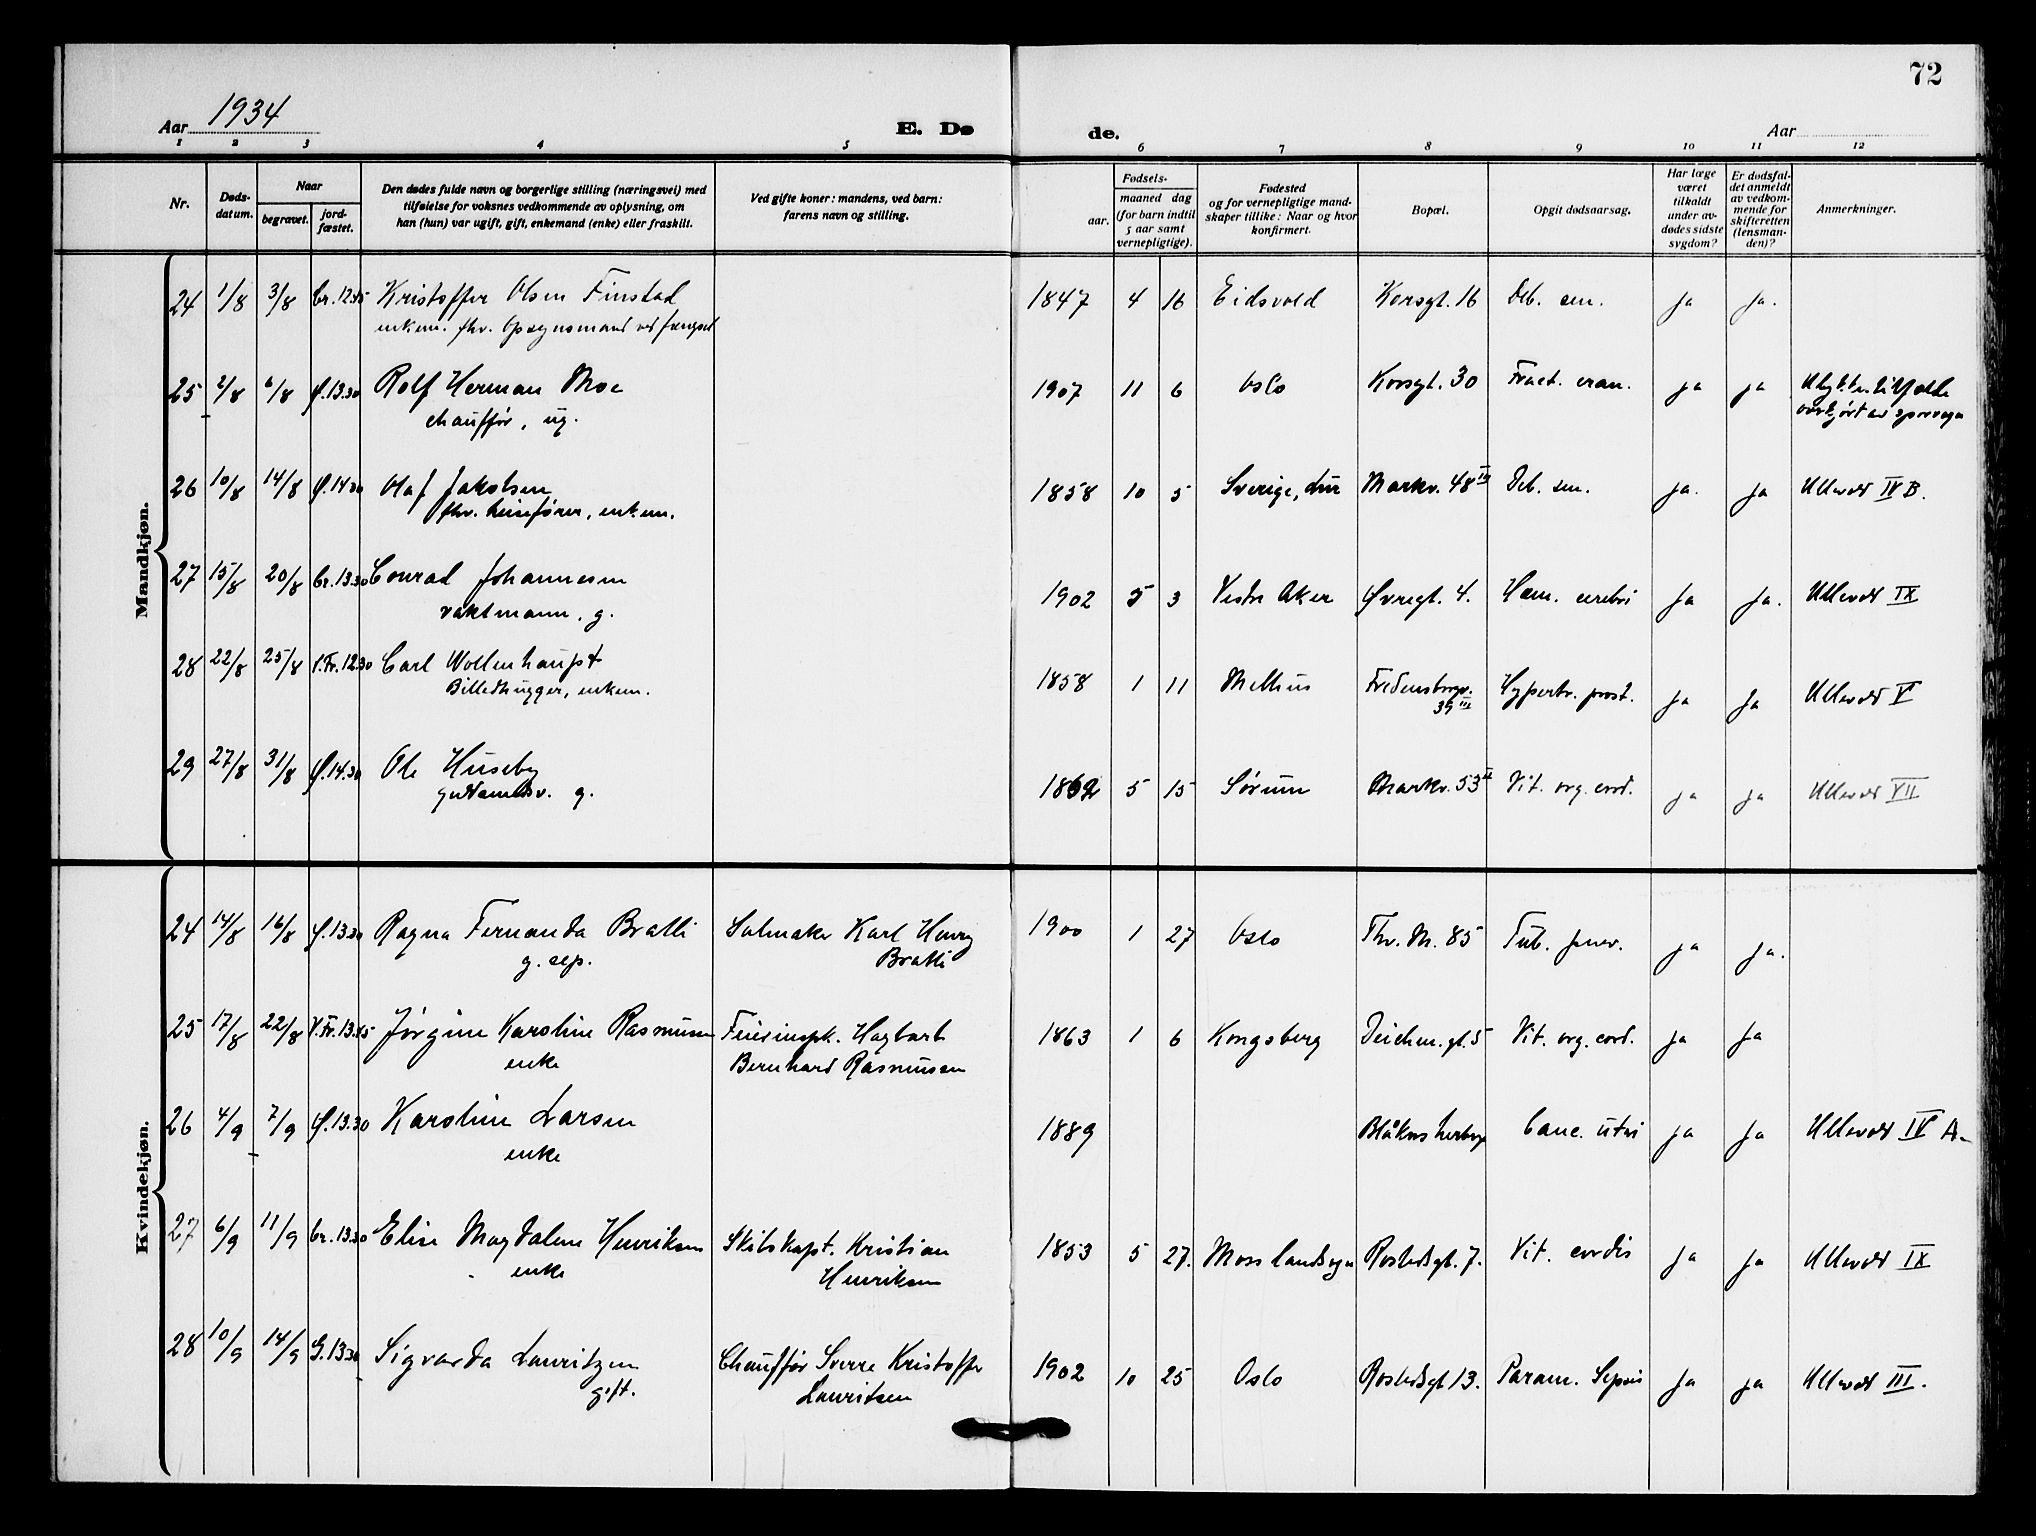 72
Aar 1934
E. Dø
de.
Aar
1 2 3 4 5 6 7 8 9 10 11 12
Nr.
Døds-
datum.
Naar
begravet.
jord-
fæstet.
Den dødes fulde navn og borgerlige stilling (næringsvei) med
tilføielse for voksnes vedkommende av oplysning, om
han (hun) var ugift, gift, enkemand (enke) eller fraskilt.
Ved gifte koner: mandens, ved barn:
farens navn og stilling.
Fødsels-
aar.
maaned dag
(for barn indtil
5 aar samt
vernepligtige).
Fødested
og for vernepligtige mand-
skaper tillike: Naar og hvor
konfirmert.
Bopæl.
Opgit dødsaarsag.
Har læge
været
tilkaldt
under av-
dødes sidste
sygdom?
Er dødsfal-
det anmeldt
av vedkom-
mende for
skifteretten
(lensman-
den)?
Anmerkninger.
Mandkjøn.
24 1/8 3/8 Cr. 12.45 Kristoffer Olsen Finstad 1847 4 16 Eidsvold Korsgt. 16 Deb. sen. ja ja.
enkem. fhv. Opsynsmand ved fængsel
25 2/8 6/8 Ø. 13.30 Rolf Herman Moe 1907 11 6 Oslo Korsgt. 30 Fract. cran. ja ja
chauffør, ug.
overkjørt av sporvogn
26 10/8 14/8 Ø. 14.00 Olaf Jakobsen 1858 10 5 Sverige, Markv. 48 III Deb. sen. ja. ja Ullevål IV B.
fhv. heisefører, enkem.
27 15/8 20/8 Cr. 13.30 Conrad Johannesen 1902 5 3 Vestre Aker Øvregt. 4. Hæm. cerebri ja ja. Ullevål IX
vaktmann, g.
28 22/8 25/8 V.Fr. 12.30 Carl Wollenhaupt 1858 1 11 Melhus Fredensborgv. Hypertr. prost. ja ja Ullevål V
Billedhugger, enkem. 39 III
29 27/8 31/8 Ø. 14.30 Ole Huseby 1862 5 15 Sørum Markv. 53 II Vit. org. cord. ja ja Ullevål VII
g.
Kvindekjøn.
24 14/8 16/8 Ø. 13.30 Ragna Fernanda Bratli Salmaker Karl Henry 1900 1 27 Oslo Thv. M. 85 Tub. pulm. ja ja.
g. sep. Bratli
25 17/8 22/8 V.Fr. 13.15 Jørgine Karoline Rasmussen Feierinspk. Hagbart 1863 1 6 Kongsberg Deichm. gt. 5 Vit. org. cord. ja ja
enke Bernhard Rasmussen
26 4/9 7/9 Ø. 13.30 Karoline Larsen 1889 Blåkors herberge Canc. uteri ja ja Ullevål IV A.
enke
27 6/9 11/9 Cr. 13.30 Elise Magdalene Henriksen Skibskapt. Kristian 1853 5 27. Moss landsogn Rostedsgt. 7. Vit. cordis ja ja Ullevål IX
enke Henriksen
28 10/9 14/9 G. 13.30 Sigvarda Lauritzen Chauffør Sverre Kristoffer 1902 10 25 Oslo Rostedsgt 13. Param. Sepsis ja ja Ullevål III.
gift. Lauritsen